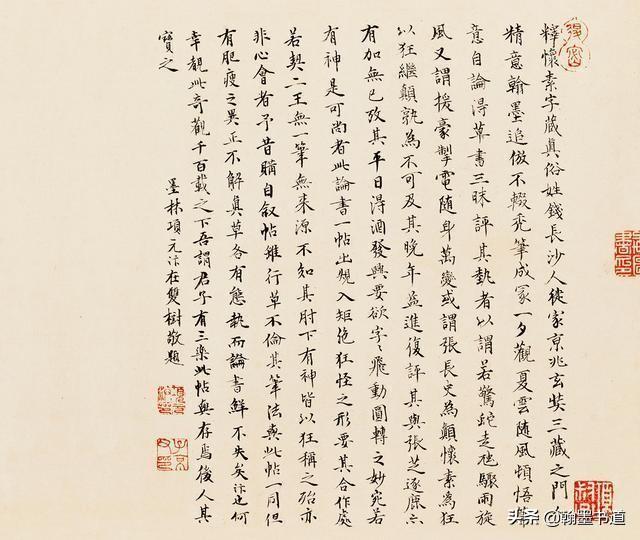 釋懷素字藏真俗姓錢長沙人徙家京兆玄奘三藏之門人
精意翰墨追倣不輟禿筆成冢一夕觀夏雲隨風頓悟筆
意自論得草書三昧評其埶者以謂若驚蛇走虺驟雨旋
風又謂援豪掣電隨身萬變或謂張長史為顛懷素為狂
以狂繼顛孰為不可及其晚年益進復評其與張芝逐鹿亦
有加無已攷其平日得酒發興要欲字々飛動圓轉之妙宛若
有神是可尚者此論書一帖出規入矩絕狂怪之形要其合作處
若契二王無一筆無來源不知其肘下有神皆以狂稱之殆亦
非心會者予昔購自叙帖雖行草不倫其筆法與此帖一同但
有肥瘦之異正不解真草各有態埶而論書鮮不失矣汴何
幸覩此奇觀千百載之下吾謂君子有三樂此帖與存焉後人其
寶之
墨林項元汴在雙樹敬題
头条 @翰墨书道